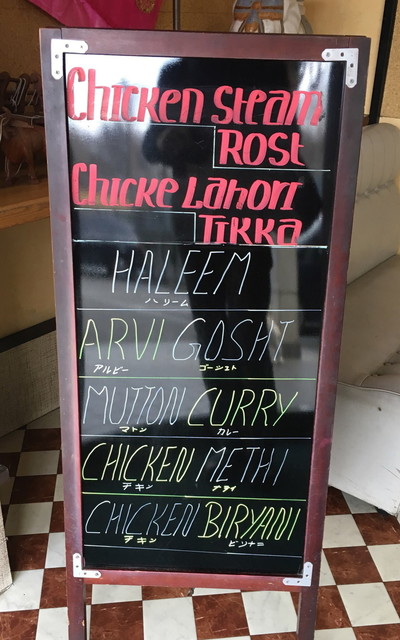 Chicken Steam
Rost
Chicke Lahori
Tikka
HALEEM
ハリーム
ARVI GOSHT
アルビー ゴーシュト
MUTTON CURRY
マトン カレー
CHICKEN METHI
チキン メティ
CHICKEN BIRYANI
チキン ビリヤニ